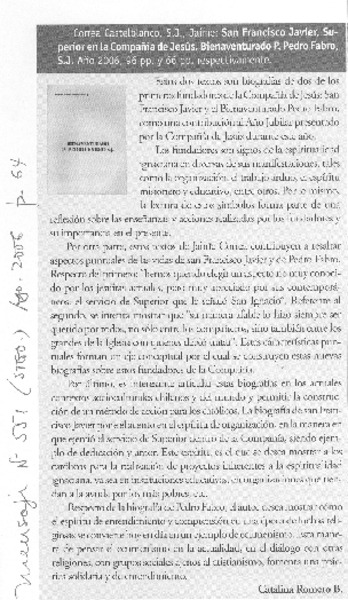 Correa Castelblanco, S.J., Jaime: San Francisco Javier, Su-
perior en la Compañía de Jesús. Bienaventurado P. Pedro Fabro,
S.J. Año 2006, 96 pp. y 66 pp. respectivamente.
Estos dos textos son biografías de dos de los
primeros fundadores de la Compañía de Jesús: San
Francisco Javier y el Bienaventurado Pedro Fabro,
como una contribución al Año Jubilar presentado
por la Compañía de Jesús durante este año.
Los fundadores son signos de la espiritualidad
ignaciana en diversas de sus manifestaciones, tales
como la organización, el trabajo arduo, el espíritu
misionero y educativo, entre otros. Por lo mismo,
la lectura de estos símbolos forma parte de una
reflexión sobre las enseñanzas y acciones realizadas por los fundadores y
su importancia en el presente.
Por otra parte, estos textos de Jaime Correa contribuyen a resaltar
aspectos puntuales de las vidas de san Francisco Javier y de Pedro Fabro.
Respecto del primero: "hemos querido elegir un aspecto no muy conoci-
do por los jesuitas actuales, pero muy apreciado por sus contemporá-
neos: el servicio de Superior que le señaló San Ignacio". Referente al
segundo, se intenta mostrar que "su manera afable lo hizo siempre ser
querido por todos, no sólo entre los compañeros, sino también entre los
grandes de la Iglesia con quienes debió tratar". Estas características pun-
tuales forman un eje conceptual por el cual se construyen estas nuevas
biografías sobre estos fundadores de la Compañía.
Por último, es interesante articular estas biografías en los actuales
contextos socioculturales chilenos y del mundo y permitir la construc-
ción de un método de acción para los católicos. La biografía de san Fran-
cisco Javier pone el acento en el espíritu de organización, en la manera en
que ejerció el servicio de Superior dentro de la Compañía, siendo ejem-
plo de dedicación y amor. Este escrito es el que se desea mostrar a los
católicos para la realización de proyectos inherentes a la espiritualidad
ignaciana, ya sea en instituciones educativas, en organizaciones que tien-
dan a la ayuda por los más pobres, etc.
Respecto de la biografía de Pedro Fabro, el autor desea mostrar cómo
el espíritu de entendimiento y comprensión en una época de luchas reli-
giosas se convierte hoy en día en un ejemplo de ecumenismo. Esta mane-
ra de pensar el ecumenismo en la actualidad, en el diálogo con otras
religiones, con grupos sociales ajenos al cristianismo, fomenta una pro-
picia solidaria y de entendimiento.
Catalina Romero B.
Mensaje N° 551 (Stgo.) Ago. 2006 p. 64